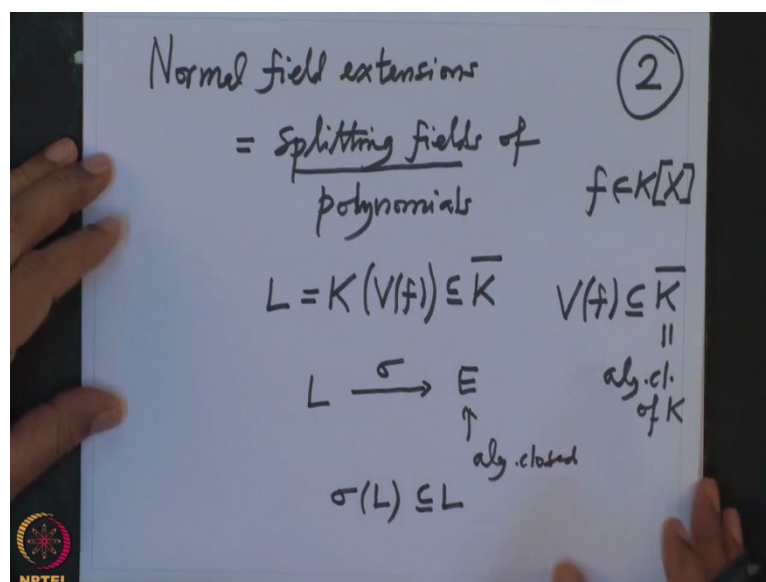 Normal field extensions
②
= splitting fields of
polynomials
f ∈ K[X]
L = K(V(f)) ⊆ K̅
V(f) ⊆ K̅
||
alg. cl.
of K
L —σ→ E
↑
alg. closed
σ(L) ⊆ L
NPTEL